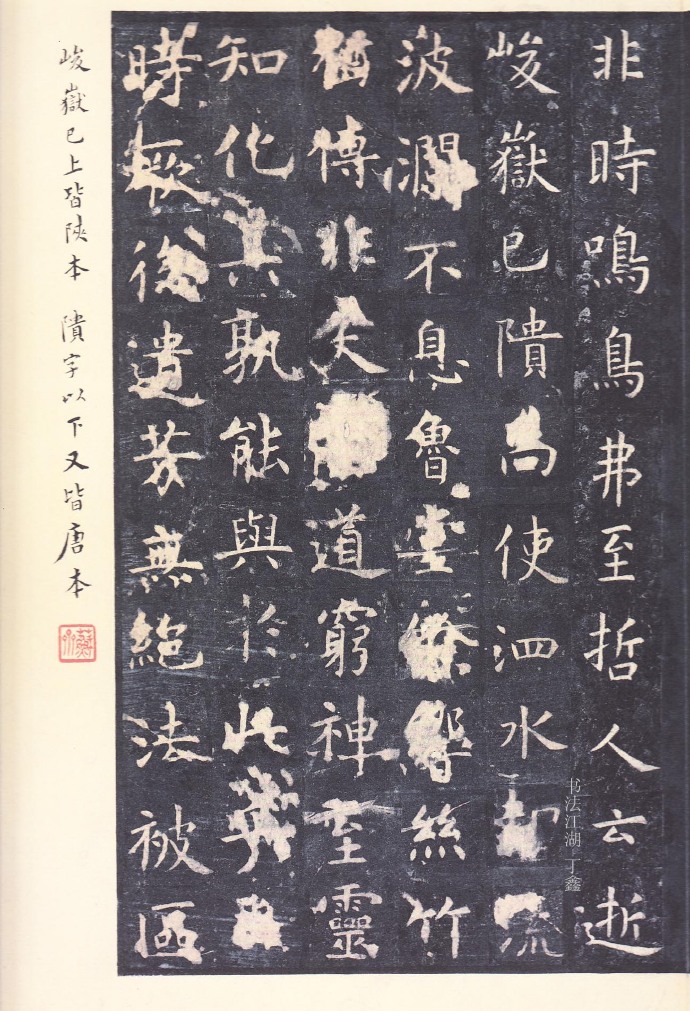 非時鳴鳥弗至哲人云逝
峻嶽已隤尚使泗水却流
波瀾不息魯堂餘響絲竹
猶傳非夫道窮神至靈
知化其孰能與於此
時厥後遺芳無絕法被區
峻嶽已上皆陝本 隤字以下又皆唐本
书法江湖 丁鑫